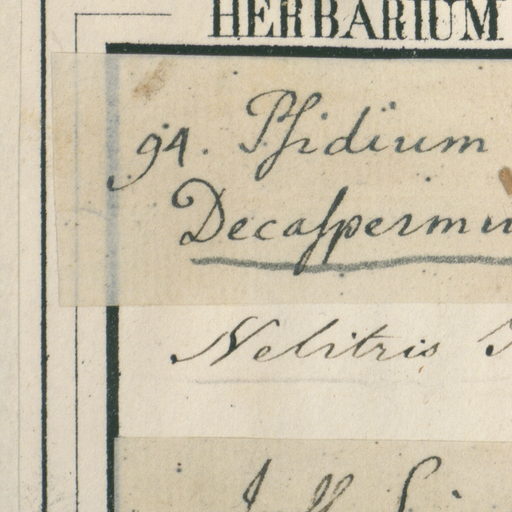 HERBARIUM
94. Psidium
Decaspermu
Nelitris